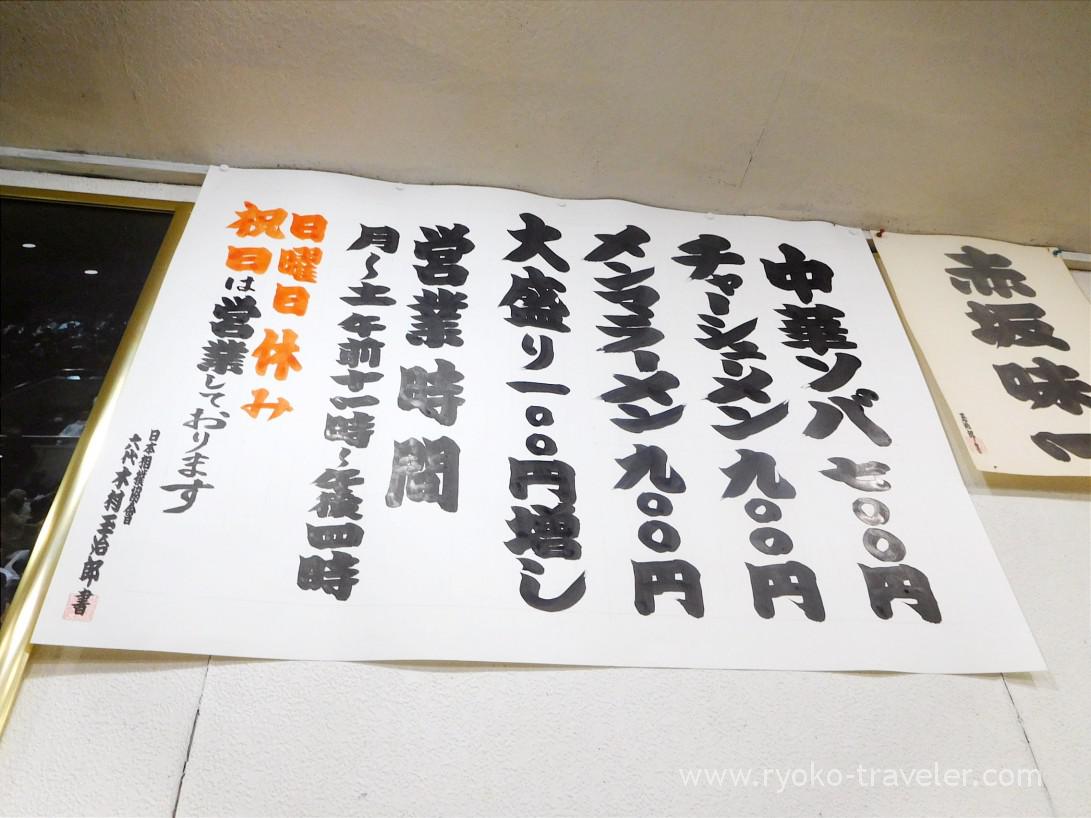 赤坂味一
中華ソバ 七〇〇円
チャーシューメン 九〇〇円
メンマラーメン 九〇〇円
大盛り一〇〇円増し
営業時間
月〜土 午前十一時〜午後四時
日曜日 休み
祝日は営業しております
日本相撲協會
六代 木村玉治郎 書
www.ryoko-traveler.com